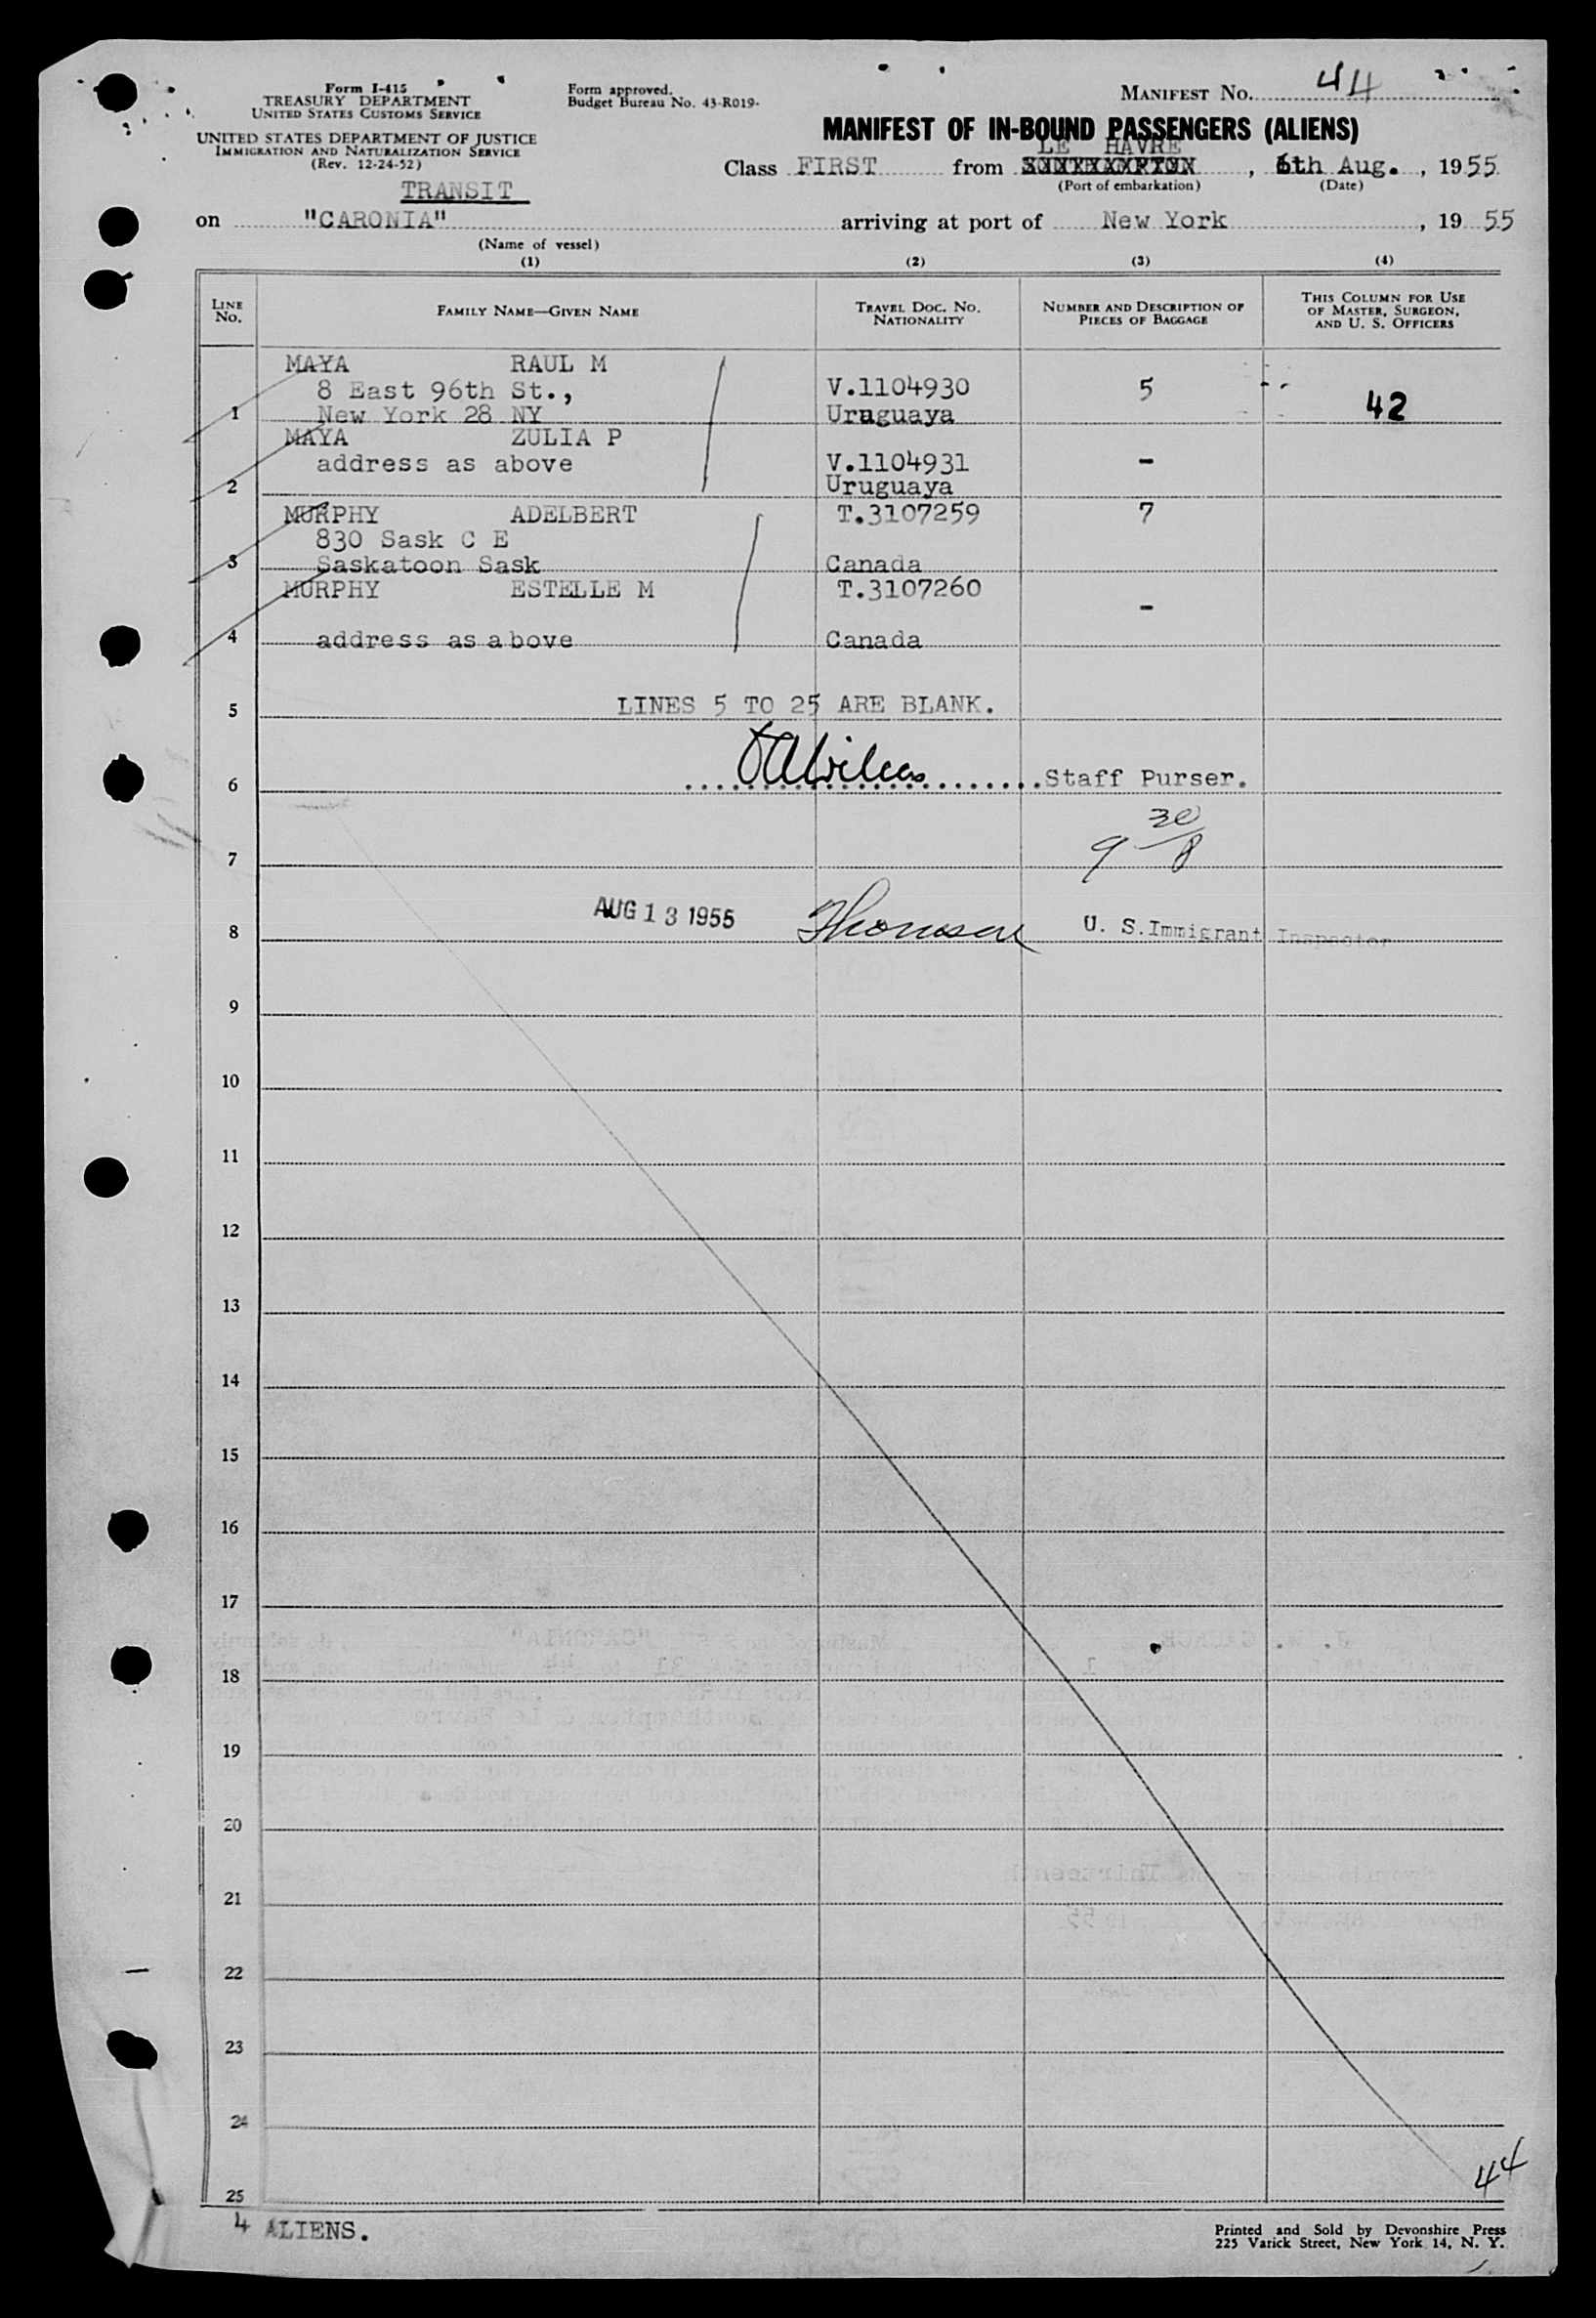 Form I-415
TREASURY DEPARTMENT
UNITED STATES CUSTOMS SERVICE
UNITED STATES DEPARTMENT OF JUSTICE
IMMIGRATION AND NATURALIZATION SERVICE
(Rev. 12-24-52)
Form approved.
Budget Bureau No. 43-R019-
MANIFEST NO. 44
MANIFEST OF IN-BOUND PASSENGERS (ALIENS)
LE HAVRE
Class FIRST from SOUTHAMPTON, 6th Aug., 1955
(Port of embarkation) (Date)
TRANSIT
on "CARONIA" arriving at port of New York, 19 55
(Name of vessel)
(1) (2) (3) (4)
LINE NO. FAMILY NAME—GIVEN NAME TRAVEL DOC. NO. NATIONALITY NUMBER AND DESCRIPTION OF PIECES OF BAGGAGE THIS COLUMN FOR USE OF MASTER, SURGEON, AND U. S. OFFICERS
MAYA RAUL M
8 East 96th St., V.1104930 5
1 New York 28 NY Uruguaya 42
MAYA ZULIA P
address as above V.1104931 -
2 Uruguaya
MURPHY ADELBERT T.3107259 7
830 Sask C E
3 Saskatoon Sask Canada
MURPHY ESTELLE M T.3107260 -
4 address as above Canada
5 LINES 5 TO 25 ARE BLANK.
6 Staff Purser.
7 9 30/8
8 AUG 13 1955 Thomsen U. S. Immigrant Inspector
9
10
11
12
13
14
15
16
17
18
19
20
21
22
23
24
44
25
4 ALIENS.
Printed and Sold by Devonshire Press
225 Varick Street, New York 14, N. Y.